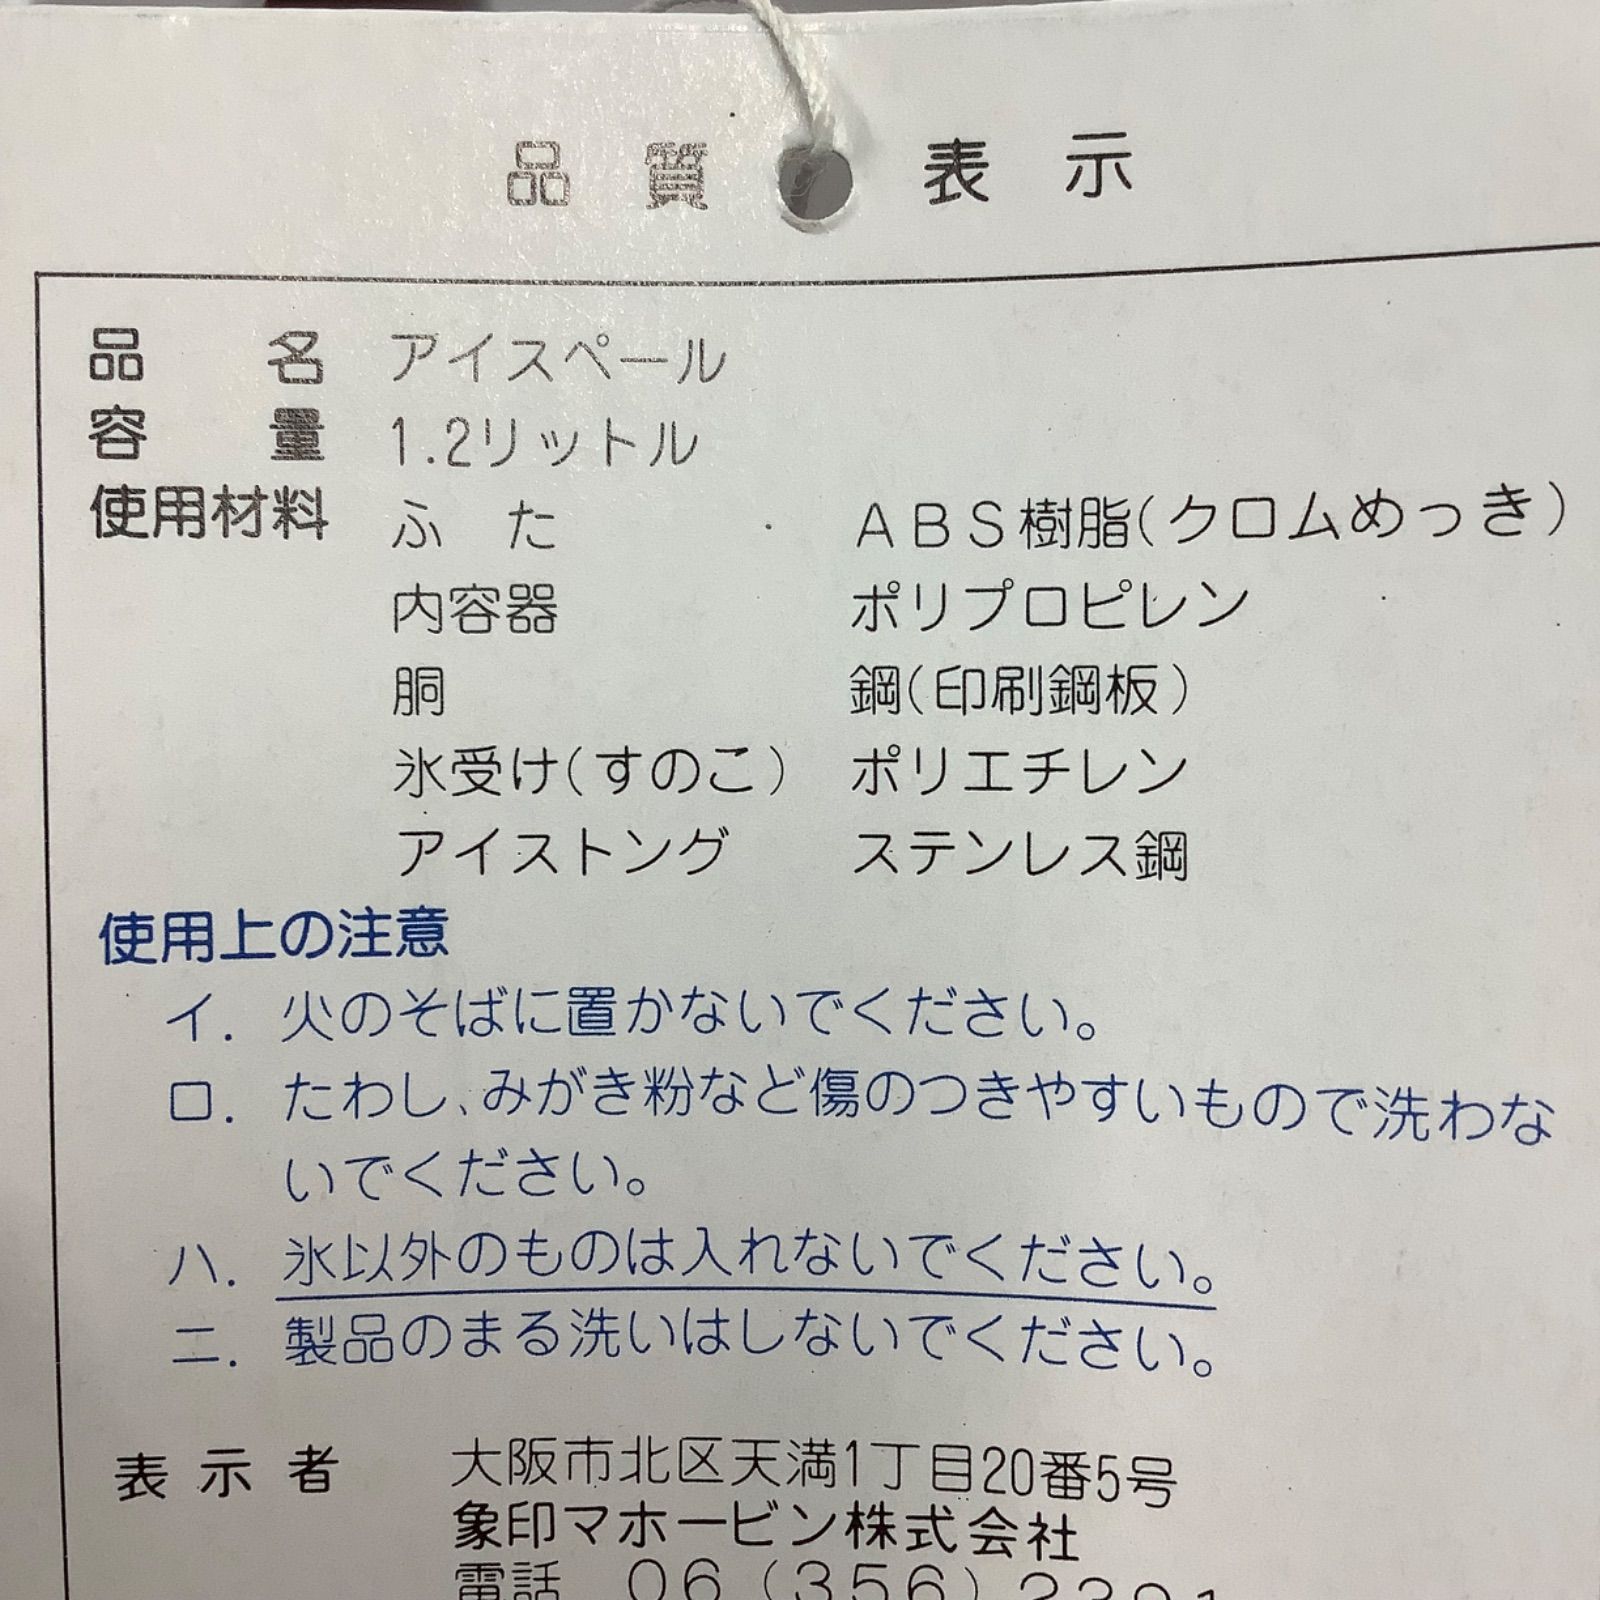 品質表示
品名 アイスペール
容量 1.2リットル
使用材料 ふた ABS樹脂(クロムめっき)
内容器 ポリプロピレン
胴 鋼(印刷鋼板)
氷受け(すのこ) ポリエチレン
アイストング ステンレス鋼
使用上の注意
イ. 火のそばに置かないでください。
ロ. たわし、みがき粉など傷のつきやすいもので洗わな
いでください。
ハ. 氷以外のものは入れないでください。
ニ. 製品のまる洗いはしないでください。
表示者 大阪市北区天満1丁目20番5号
象印マホービン株式会社
電話 06(356)